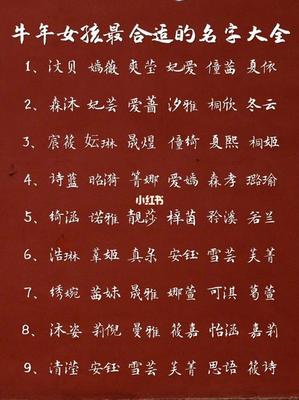 牛年女孩最合适的名字大全
1、汶贝 嫣薇 爽莹 妃爱 僮茜 夏依
2、森沐 妃芸 爱蔷 汐雅 桐欣 冬云
3、宸筱 妘琳 晟煜 僮绮 夏熙 桐姬
4、诗蓝 昭漪 箐娜 爱嫣 森孝 璐瑜
小红书
5、绮涵 诺雅 靓莎 梓茵 矜溪 若兰
6、浩琳 蕈姬 真朵 安钰 雪芸 芙菁
7、绣婉 茜妹 晟雅 娜萱 可淇 葛萱
8、沐姿 莉倪 曼雅 筱嘉 怡涵 嘉莉
9、清滢 安钰 雪芸 芙菁 思语 筱诗